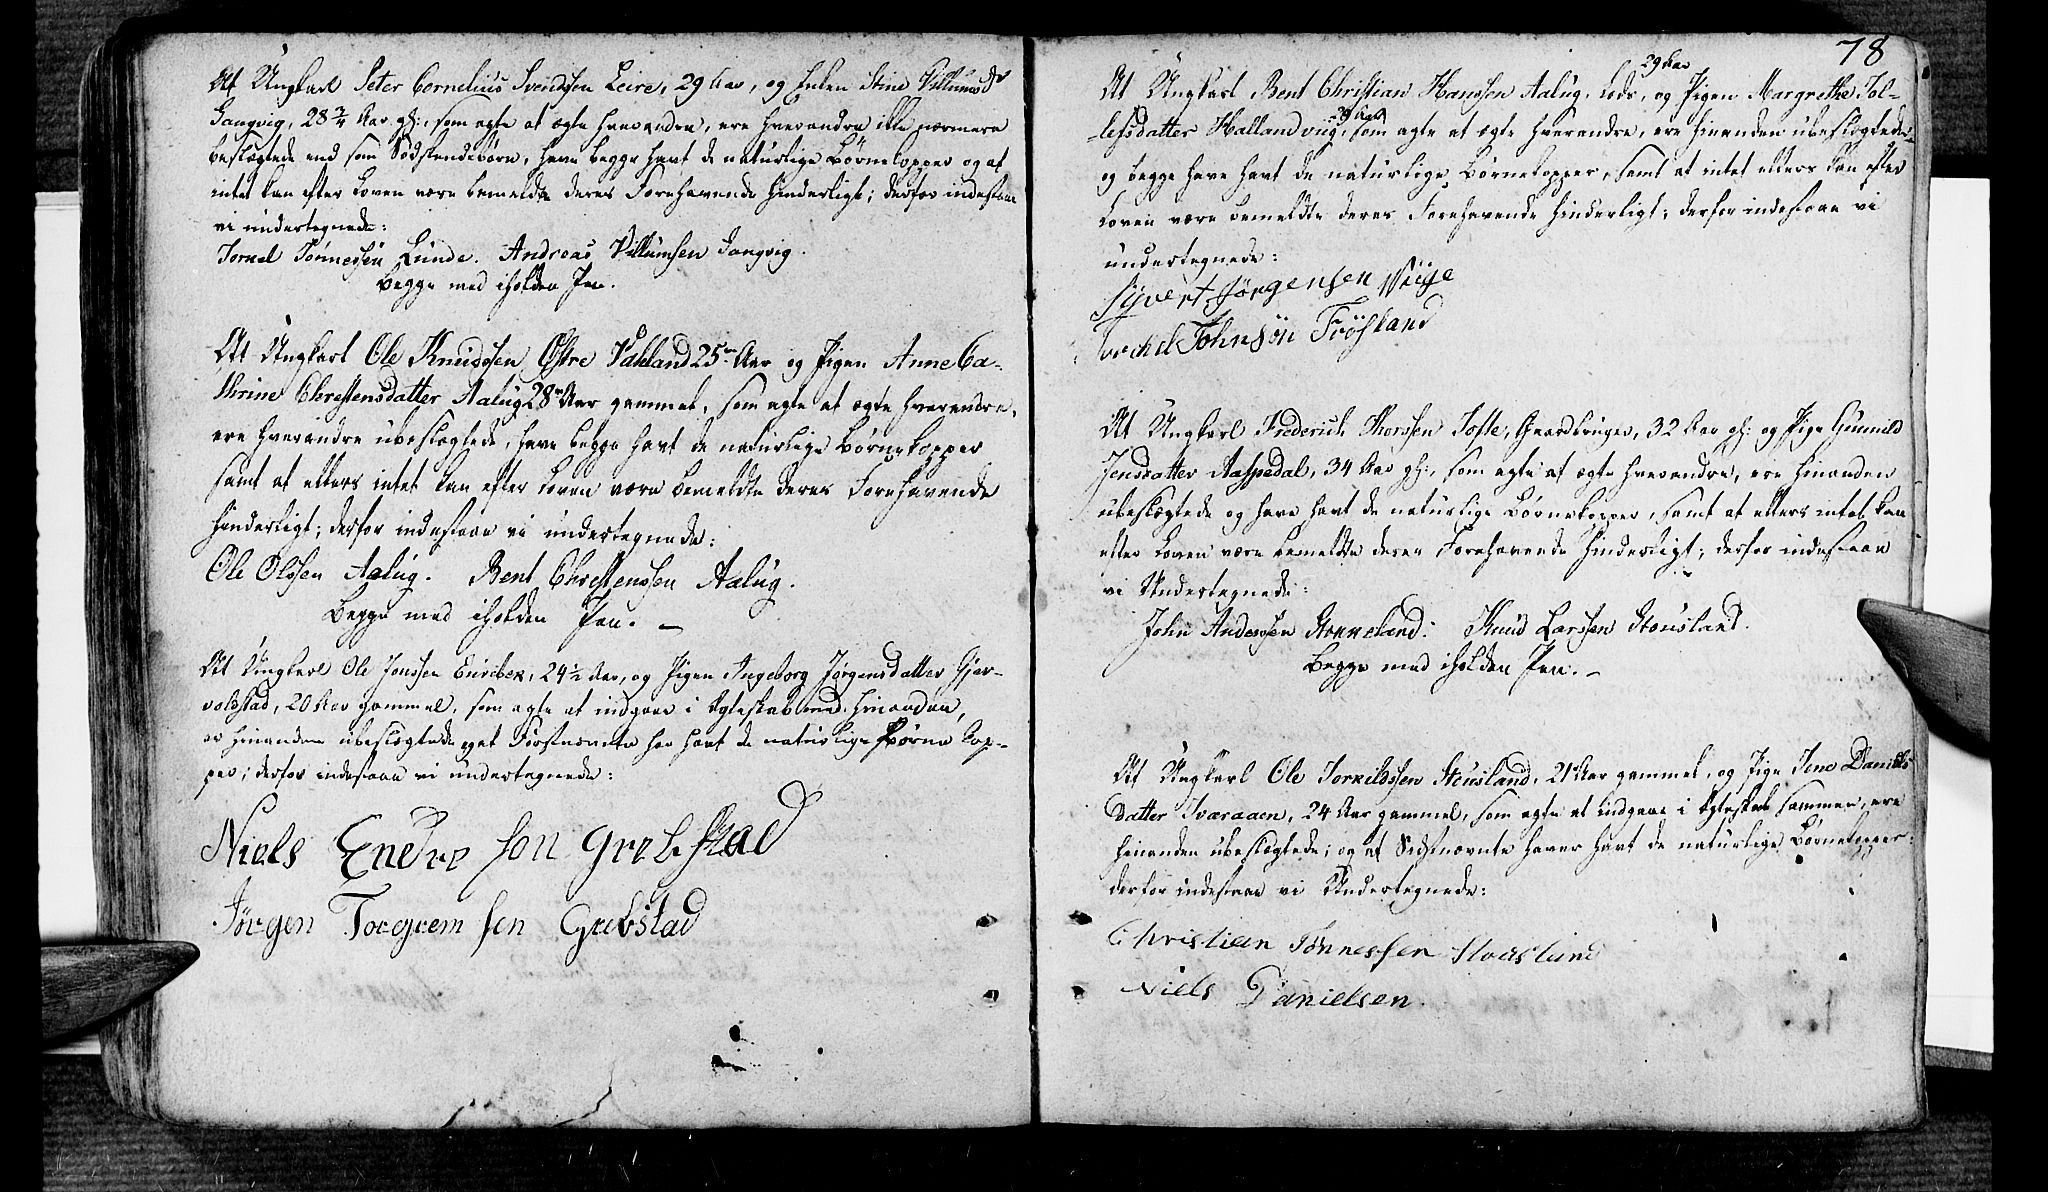 At Ungkarl Peter Cornelius Svendsen Leire, 29 Aar, og Enken Stine Villumsdr
Langvig, 28 3/4 Aar gl:, som agte at ægte hverandre, ere hverandre ikke nærmere
beslægtede end som Sødskendebørn, have begge havt de naturlige Börnekopper og at
intet kan efter Loven være bemeldte deres Forehavende hinderligt; derfor indestaae
vi undertegnede:
Tornel Tönnessen Lunde. Andreas Villumsen Langvig.
begge med iholden Pen.
At Ungkarl Ole Knudssen Østre Vatland 25 Aar og Pigen Anne Ca-
thrine Chrestensdatter Aalug 28 Aar gammel, som agte at ægte hverandre,
ere hverandre ubeslægtede, have begge havt de naturlige Börnekopper
samt at ellers intet kan efter Loven være bemeldte deres Forehavende
hinderligt; derfor indestaae vi undertegnede:
Ole Olssen Aalug. Bent Chrestenssen Aalug.
begge med iholden Pen.
At Ungkarl Ole Jonssen Enireber, 24 1/2 Aar, og Pigen Ingeborg Jørgensdatter Gjer-
voldstad, 20 Aar gammel, som agte at indgaae i Ægteskab med hinanden,
er hinanden ubeslægtede og at Førstnævnte har havt de naturlige Börnekop-
per; derfor indestaae vi undertegnede:
Niels Endre sen Grebstad
Jörgen Torgrem sen Grebstad
78
29 Aar
At Ungkarl Bent Christian Hanssen Aalug, Lods, og Pigen Margrethe Tol-
lefsdatter Hallandviig, 29 Aar, som agte at ægte hverandre, ere hinanden ubeslægtede
og begge have havt de naturlige Börnekopper, samt at intet ellers kan efter
Loven være bemeldte deres Forehavende hinderligt; derfor indestaae vi
undertegnede:
Syvert Jörgensen Viige
Torchel Johnsön Fröysland
At Ungkarl Frederich Thorssen Tofte, Gaardbruger, 32 Aar gl: og Pige Gunnild
Jensdatter Aaspedal, 34 Aar gl:, som agte at ægte hverandre, ere hinanden
ubeslægtede og have havt de naturlige Börnekopper, samt at ellers intet kan
efter Loven være bemeldte deres Forehavende hinderligt; derfor indestaae
vi Undertegnede:
John Anderssen Stonneland. Knud Larssen Stousland.
begge med iholden Pen.
At Ungkarl Ole Torkildssen Stousland, 21 Aar gammel, og Pige Jene Daniels
datter Tveraaen, 24 Aar gammel, som agte at indgaae i Ægteskab sammen, ere
hinanden ubeslægtede; og at Sidstnævnte haver havt de naturlige Börnekopper:
derfor indestaae vi Undertegnede:
Christien Tönnessen Stousland
Niels Danielsen.